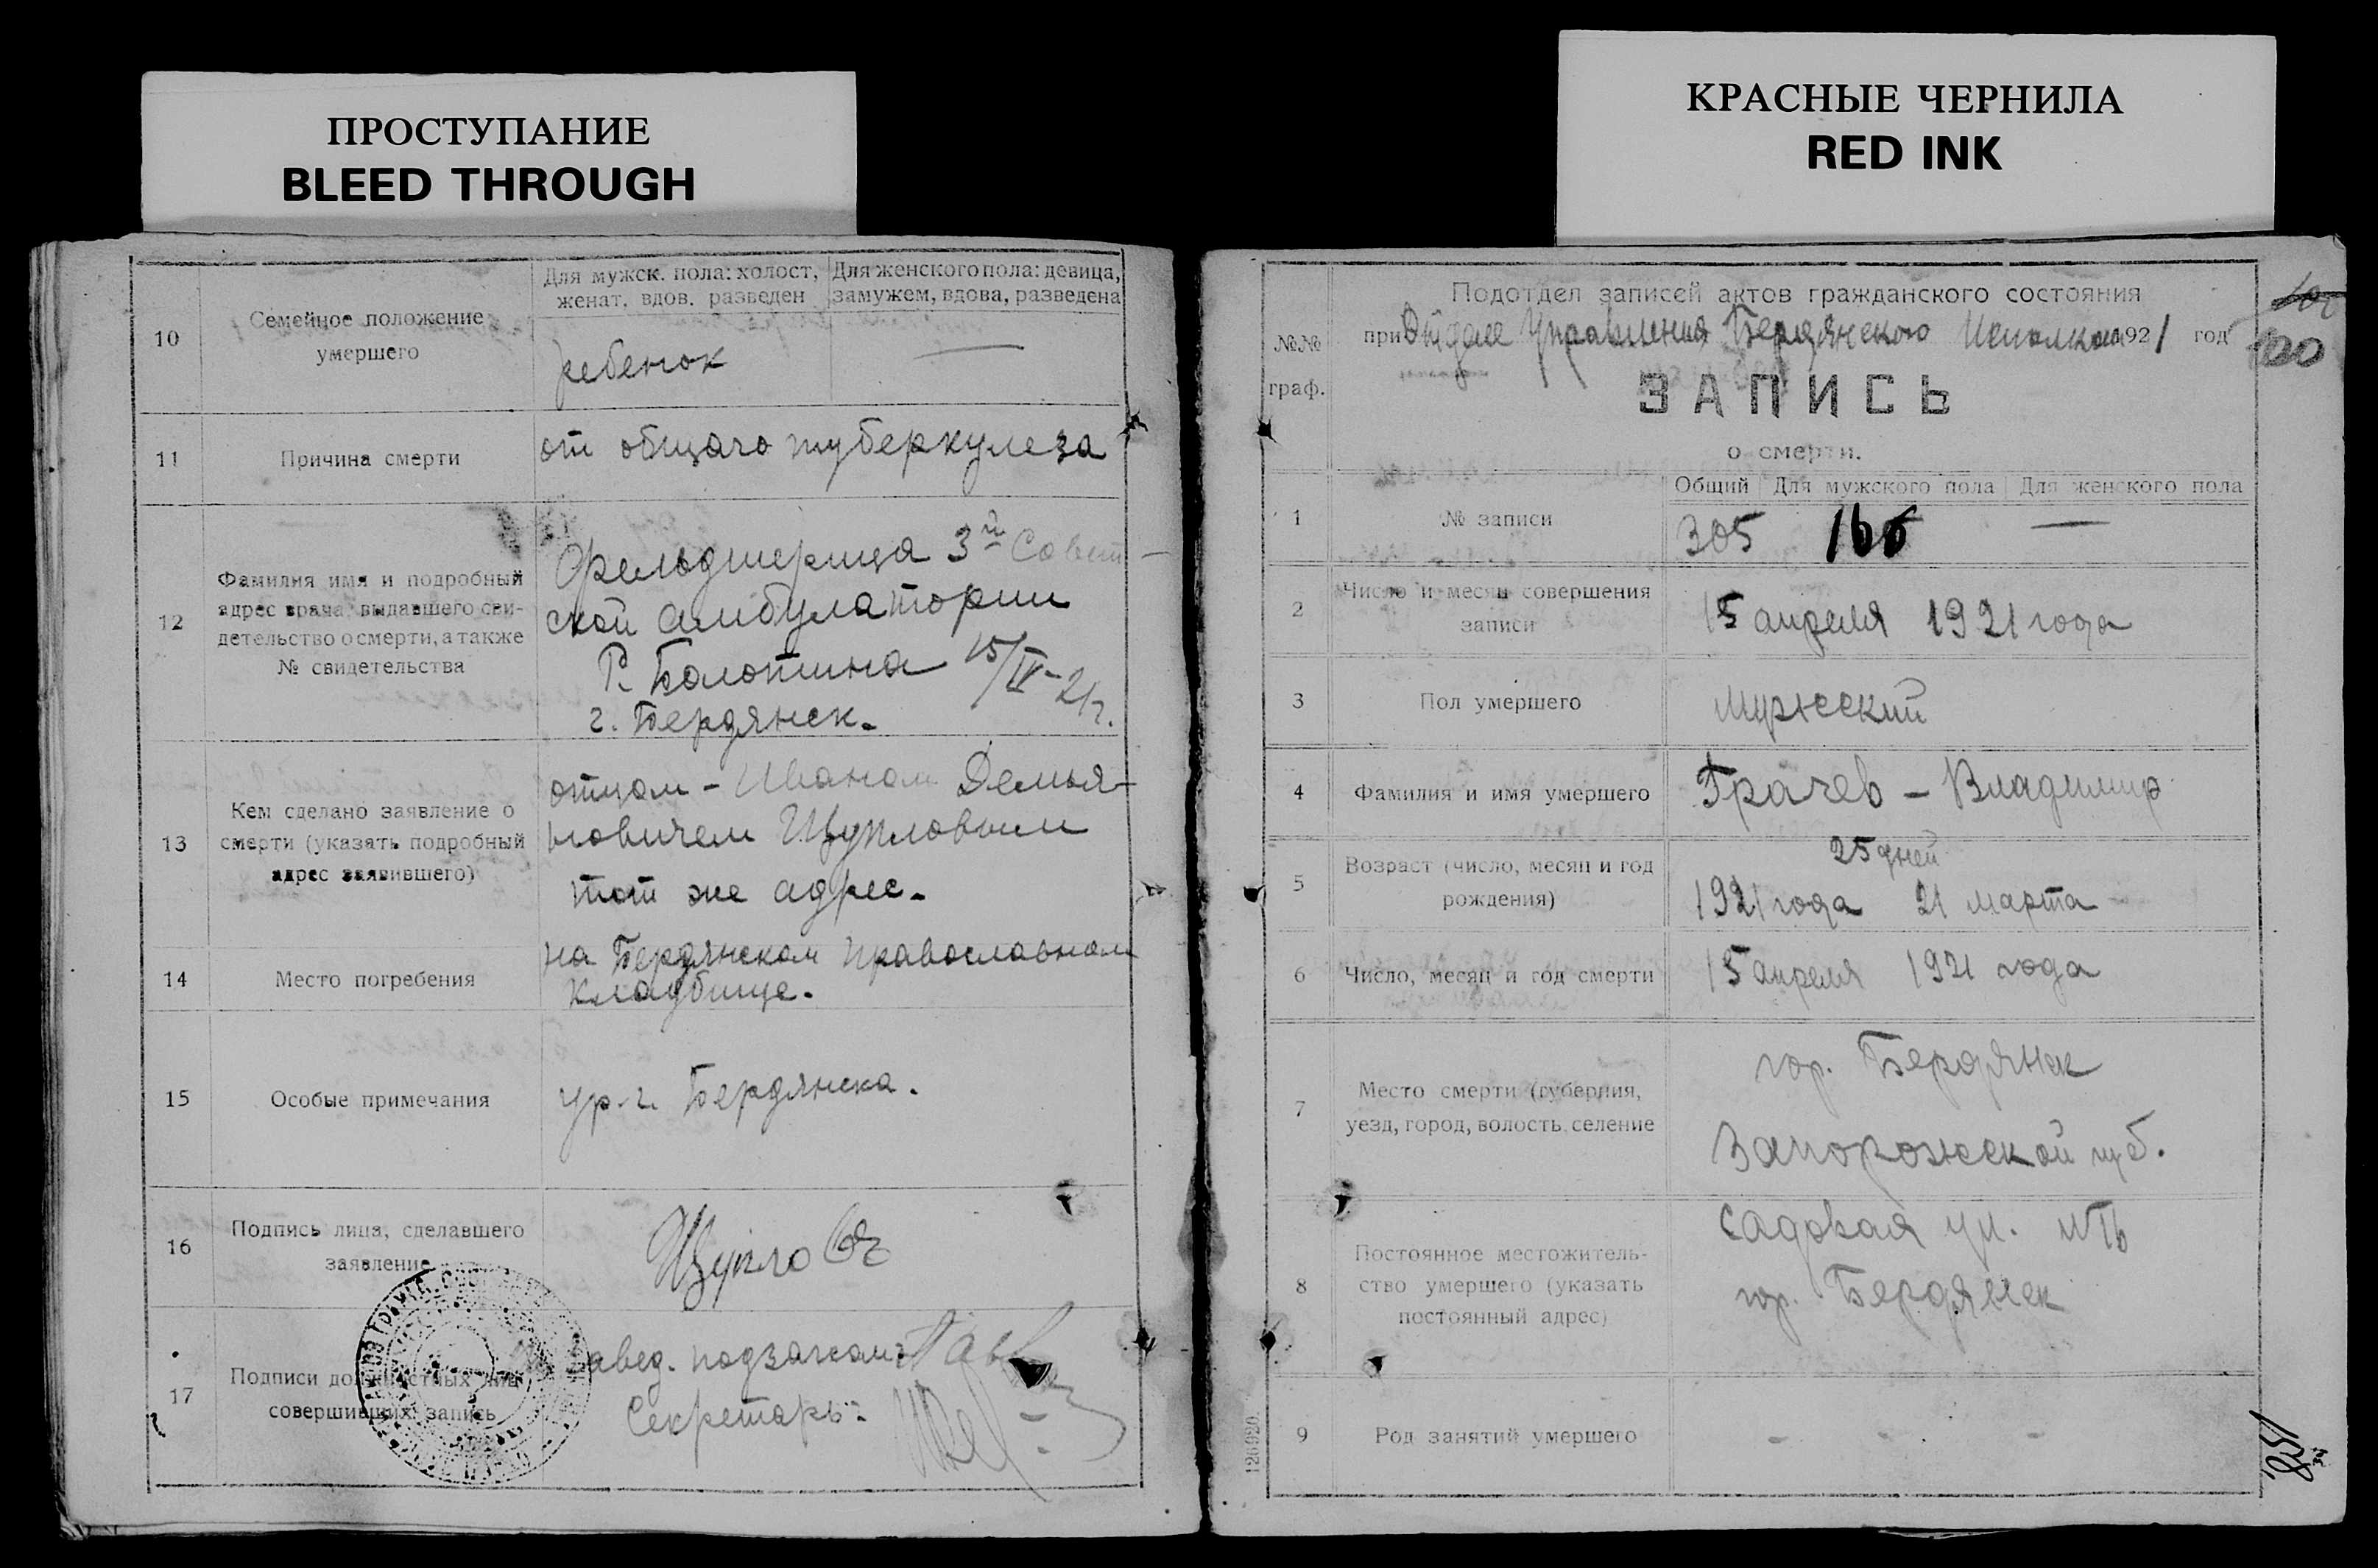 ПРОСТУПАНИЕ
BLEED THROUGH
10
Семейное положение
умершего
Для мужск. пола: холост,
женат. вдов. разведен
Для женского пола: девица,
замужем, вдова, разведена
ребенок
—
11
Причина смерти
от общаго туберкулеза
12
Фамилия имя и подробный
адрес врача выдавшего сви-
детельство о смерти, а также
№ свидетельства
Фельдшерица 3й Совет-
ской амбулатории
Р. Болотина 15/IV-21г.
г. Бердянск.
13
Кем сделано заявление о
смерти (указать подробный
адрес заявившего)
отцом - Иваном Демья-
новичем Щупловым
тот же адрес.
14
Место погребения
на Бердянском православном
кладбище.
15
Особые примечания
ур. г. Бердянска.
16
Подпись лица, сделавшего
заявление
17
Подписи должностных лиц
совершивших запись
Завед. подзагсом:
Секретарь:
КРАСНЫЕ ЧЕРНИЛА
RED INK
100
№№
граф.
Подотдел записей актов гражданского состояния
при Отделе Управления Бердянского Исполкома 1921 год
ЗАПИСЬ
о смерти.
Общий
Для мужского пола
Для женского пола
1
№ записи
305
166
—
2
Число и месяц совершения
записи
15 апреля 1921 года
3
Пол умершего
Мужеский
4
Фамилия и имя умершего
Грачев - Владимир
5
Возраст (число, месяц и год
рождения)
25 дней
1921 года 21 марта
6
Число, месяц и год смерти
15 апреля 1921 года
7
Место смерти (губерния,
уезд, город, волость, селение
гор. Бердянск
Запорожской губ.
8
Постоянное местожитель-
ство умершего (указать
постоянный адрес)
Садовая ул.
гор. Бердянск
9
Род занятий умершего
- - -
126920.